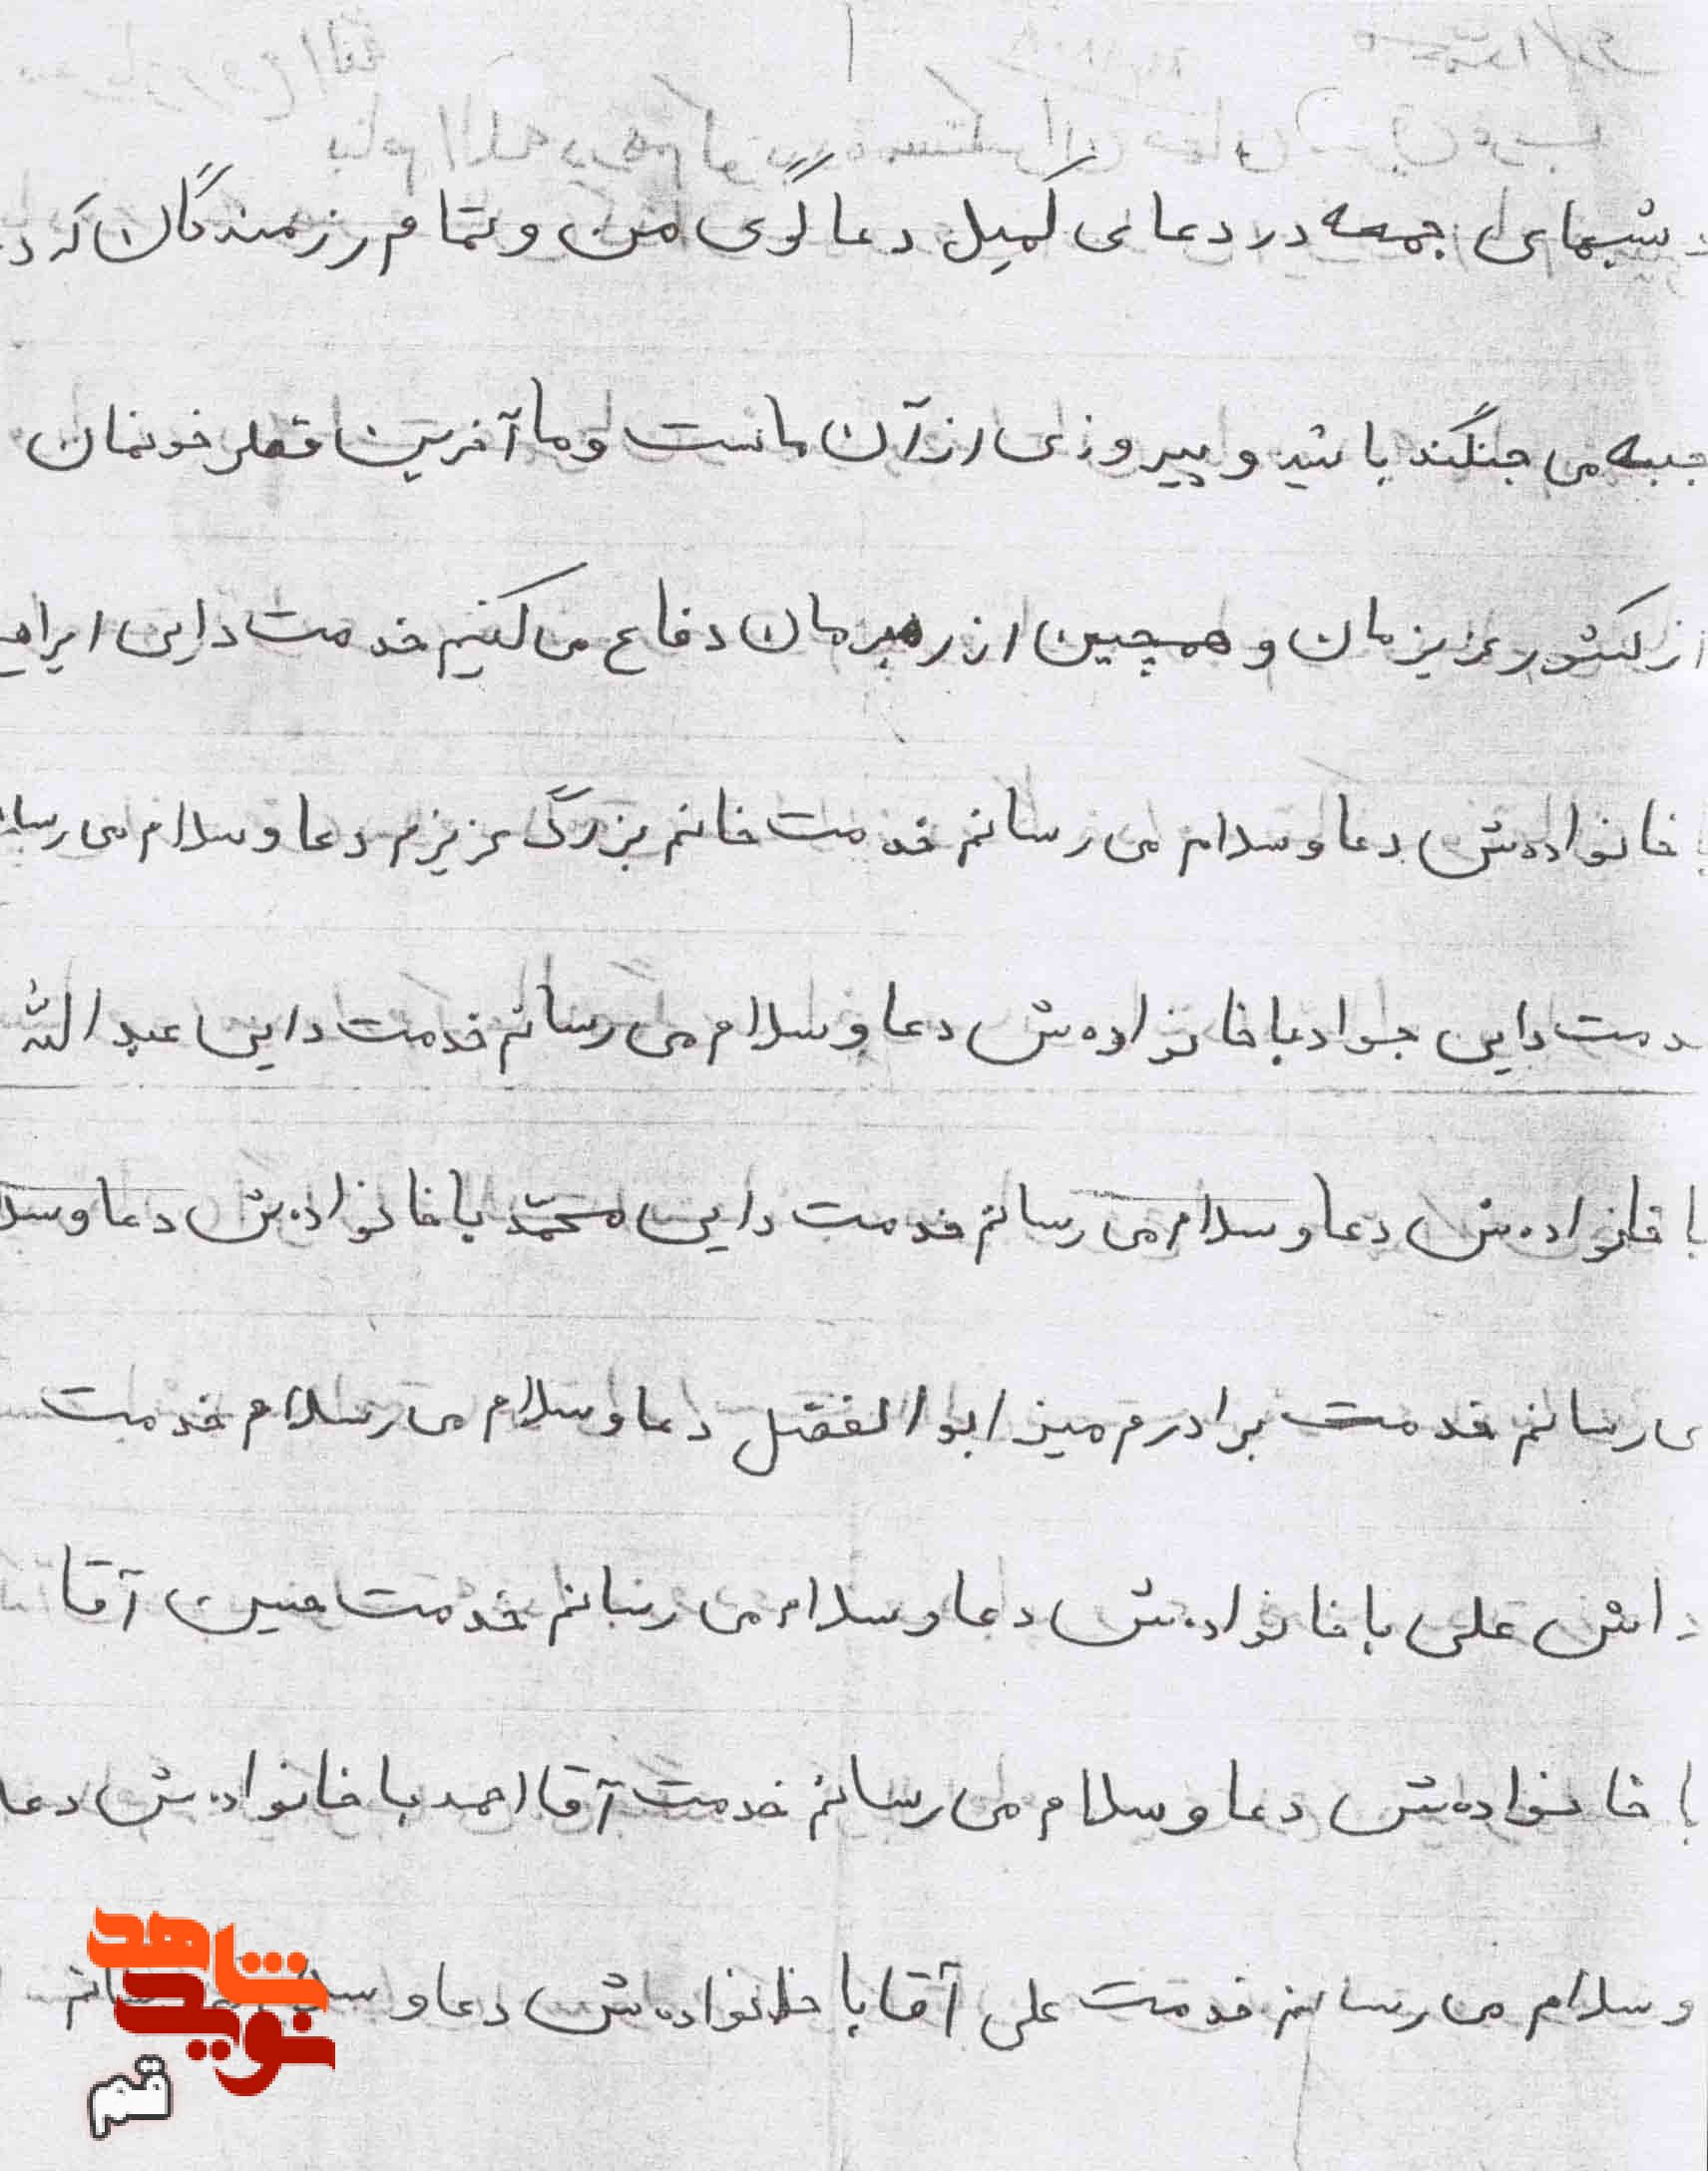 شبهای جمعه در دعای کمیل دعا گوی من و تمام رزمندگان که د
جبهه می جنگند باشید و پیروزی از آن ماست و ما آخرین قطره خونمان
از کشور عزیزمان و همچنین از رهبرمان دفاع می کنیم خدمت دایی ابراهیـ
خانواده ش دعا و سلام می رسانم خدمت خانم بزرگ عزیزم دعا و سلام می رسانـ
دمت دایی جواد با خانواده ش دعا و سلام می رسانم خدمت دایی عبد الله
با خانواده ش دعا و سلام می رسانم خدمت دایی محمّد با خانواده ش دعا و سلا
ی رسانم خدمت برادرم میز ابو الفضل دعا و سلام می رسلام خدمت
داش علی با خانواده ش دعا و سلام می رسانم خدمت حسین آقا
با خانواده ش دعا و سلام می رسانم خدمت آقا احمد با خانواده ش دعا
و سلام می رسانم خدمت علی آقا با خانواده ش دعا و
نوید شاهد
قم